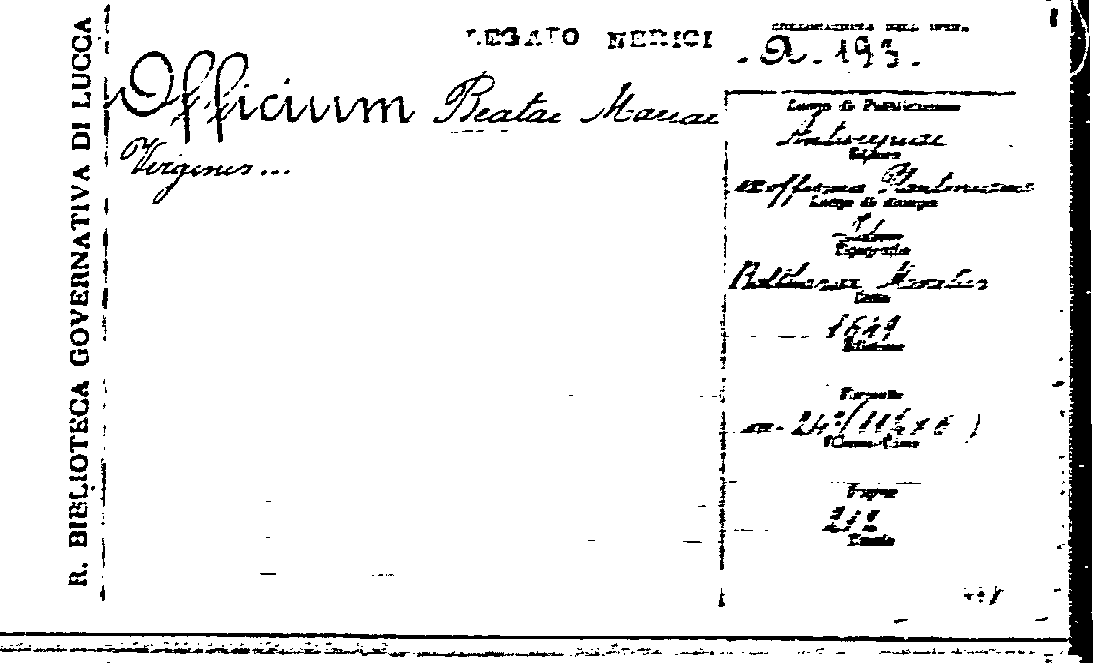 R. BIBLIOTECA GOVERNATIVA DI LUCCA
LEGATO NERICI
COLLOCAZIONE DELL'OPERA
A. 193.
Officium Beatae Mariae
Virginis...
Luogo di Pubblicazione
Antverpiae
Editore
ex officina Plantiniana
Luogo di stampa
Tipografo
Balthasar Moretus
Data
1649
Edizione
Formato
in-24°
Pagine
212